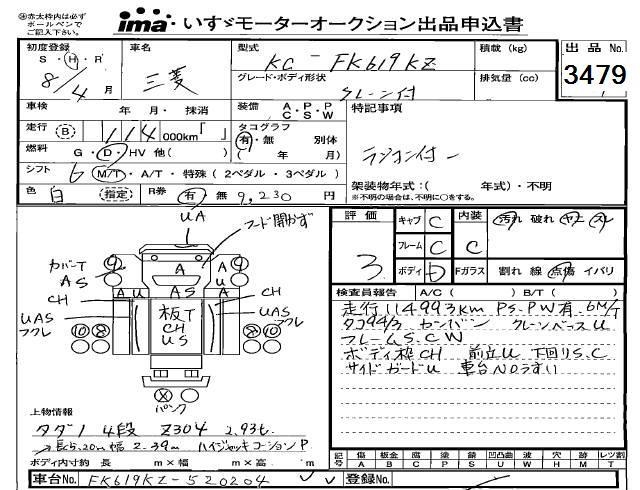 ※赤太枠内は必ず
ボールペンで
ご記入下さい。
ima いすゞモーターオークション出品申込書
初度登録 車名 型式 積載(kg) 出品No.
S・H・R 8/4月 三菱 KC-FK619KZ 3479
グレード・ボディ形状 排気量(cc)
クレーン付
車検 年 月・抹消 装備 A・P・P C・S・W 特記事項
走行 (B) 114 000km「 」 タコグラフ
有・無 別体
燃料 G・D・HV 他( ) ( 年 月) ラジコン付
シフト 6 M/T・A/T・特殊(2ペダル・3ペダル)
架装物年式:( 年式)・不明
色 白 (指定) R券 有 無 9,230円 ※不明の場合は、不明に○をする。
評価 3 キャブ C 内装 C 汚れ 破れ ヤニ スレ
フレーム C
ボディ D Fガラス 割れ 線 点傷 イバリ
UA
フード開かず
カバーT A A U
AS A U AS A
CH CH
UAS UAS
フクレ フクレ
板T
CH
US
10 8 8 10
パンク
検査員報告 A/C( ) B/T( )
走行114993km PS.PW有.6M/T
タコ94/3 センバン クレーンベースU
フレームS.C W
ボディ枠CH 前立U 下回りS.C
サイドガードU 車台NOうすい
上物情報
タダノ 4段 Z304 2.93t.
長5.20m 幅2.39m ハイジャッキ P.
ボディ内寸約 長 m×幅 m×高 m
記号 傷 板金 腐 塗 錆 凹凸曲 波 W 穴 跡 レツ割
A B C P S U W H M T
車台No. FK619KZ-520204 登録No.